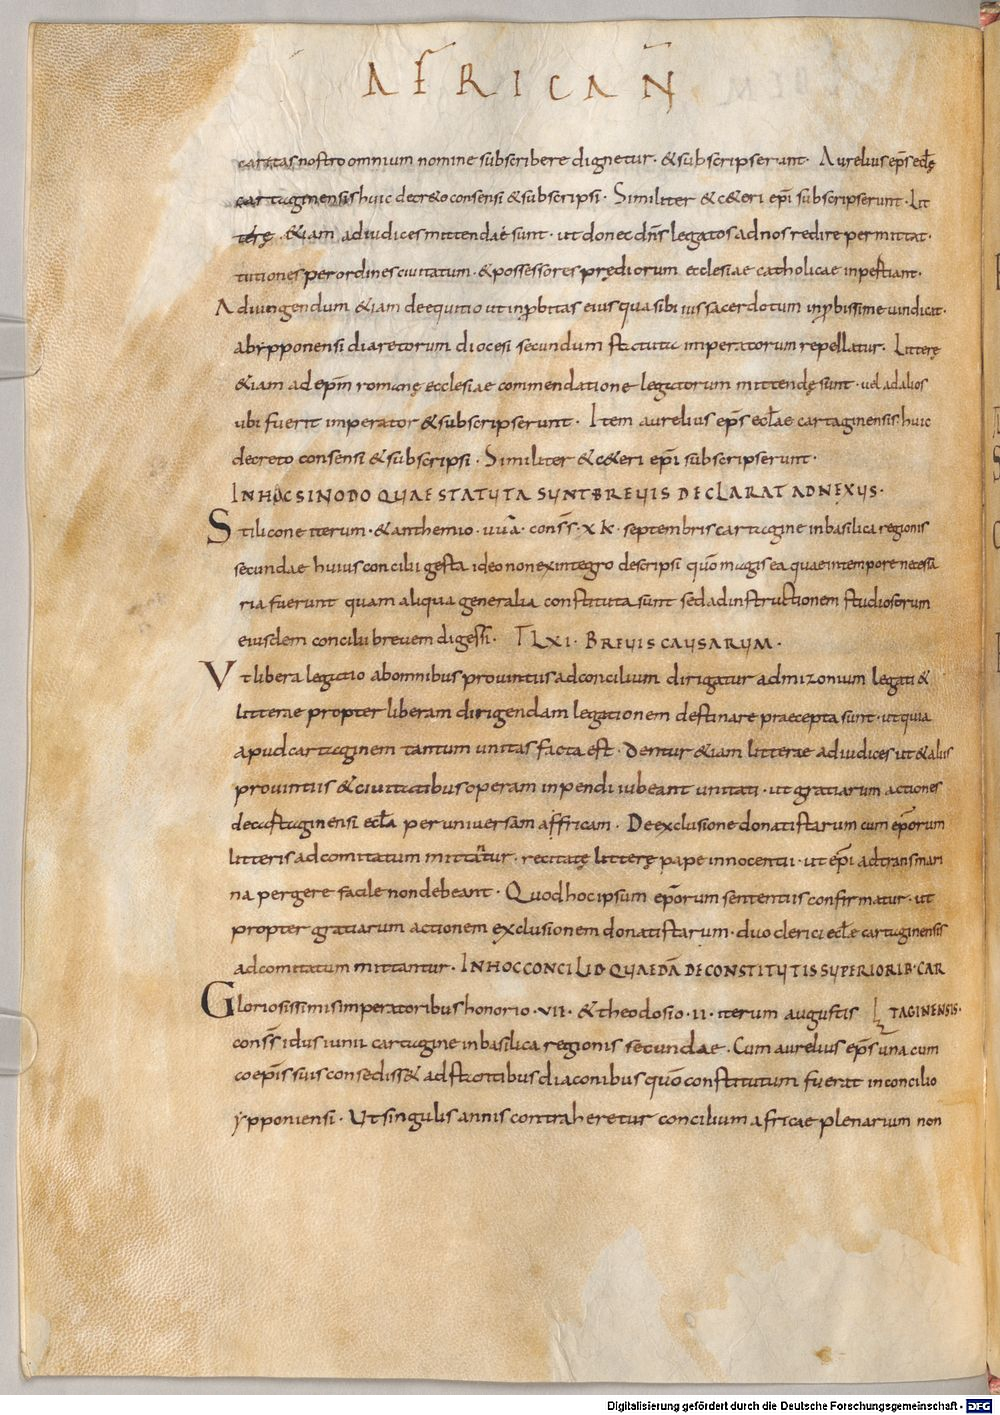 AFRICAN̄
caritas nostro omnium nomine subscribere dignetur · & subscripserunt · Aurelius ep̄s eccl̄ę
cartaginensis huic decr&o consensi & subscripsi · Similiter & c&eri ep̄i subscripserunt · Lit
terę · &iam adiudices mittendae sunt · ut donec dn̄s legatos ad nos redire permittat ·
tutiones per ordines ciuitatum · & possessores prędiorum ecclesiae catholicae inpestiant ·
Adiungendum &iam de equitio ut inprobitas eius qua sibi ius sacerdotum inprobissime uindicat ·
ab ypponensi diaretorum diocesi secundum statuta imperatorum repellatur · Litterę
&iam ad ep̄m romanę ecclesiae commendatione legatorum mittendę sunt · uel ad alios
ubi fuerit imperator & subscripserunt · Item aurelius ep̄s eccl̄ae cartaginensis huic
decreto consensi & subscripsi · Similiter & c&eri ep̄i subscripserunt ·
IN HOC SINODO QUAE STATUTA SUNT BREUIS DECLARAT ADNEXUS ·
Stilicone iterum · & anthemio · uū · cons̄s · x k · septembris cartagine in basilica regionis
secundae huius concilii gesta ideo non ex integro descripsi quōm magis ea quae in tempore necessa
ria fuerunt quam aliqua generalia constituta sunt sed ad instructionem studiosorum
eiusdem concilii breuem digessi · T LXI · BREUIS CAUSARUM ·
Ut libera legatio ab omnibus prouintiis ad concilium dirigatur ad mizonium legati &
litterae propter liberam dirigendam legationem destinare praecepta sunt · ut quia
apud cartaginem tantum unitas facta est · Dentur &iam litterae ad iudices ut & aliis
prouintiis & ciuitatibus operam inpendi iubeant unitati · ut gratiarum actiones
de cartaginensi eccl̄a per uniuersam affricam · De exclusione donatistarum cum ep̄orum
litteris ad comitatum mittatur · recitatę litterę pape innocentii · ut ep̄i ad transmari
na pergere facile non debeant · Quod hoc ipsum ep̄orum sententiis confirmatur · ut
propter gratiarum actionem exclusionem donatistarum · duo clerici eccl̄e cartaginensis
ad comitatum mittantur · IN HOC CONCILIO QUAEDĀ DE CONSTITUTIS SUPERIORIB · CAR
Gloriosissimis imperatoribus honorio · VII · & theodosio · II · iterum augustis TAGINENSIS ·
cons̄s idus iunii cartagine in basilica regionis secundae · Cum aurelius ep̄s una cum
coep̄is suis consediss& adstantibus diaconibus quōm constitutum fuerat in concilio
ypponiensi · Ut singulis annis contraheretur concilium africae plenarium non
Digitalisierung gefördert durch die Deutsche Forschungsgemeinschaft - DFG